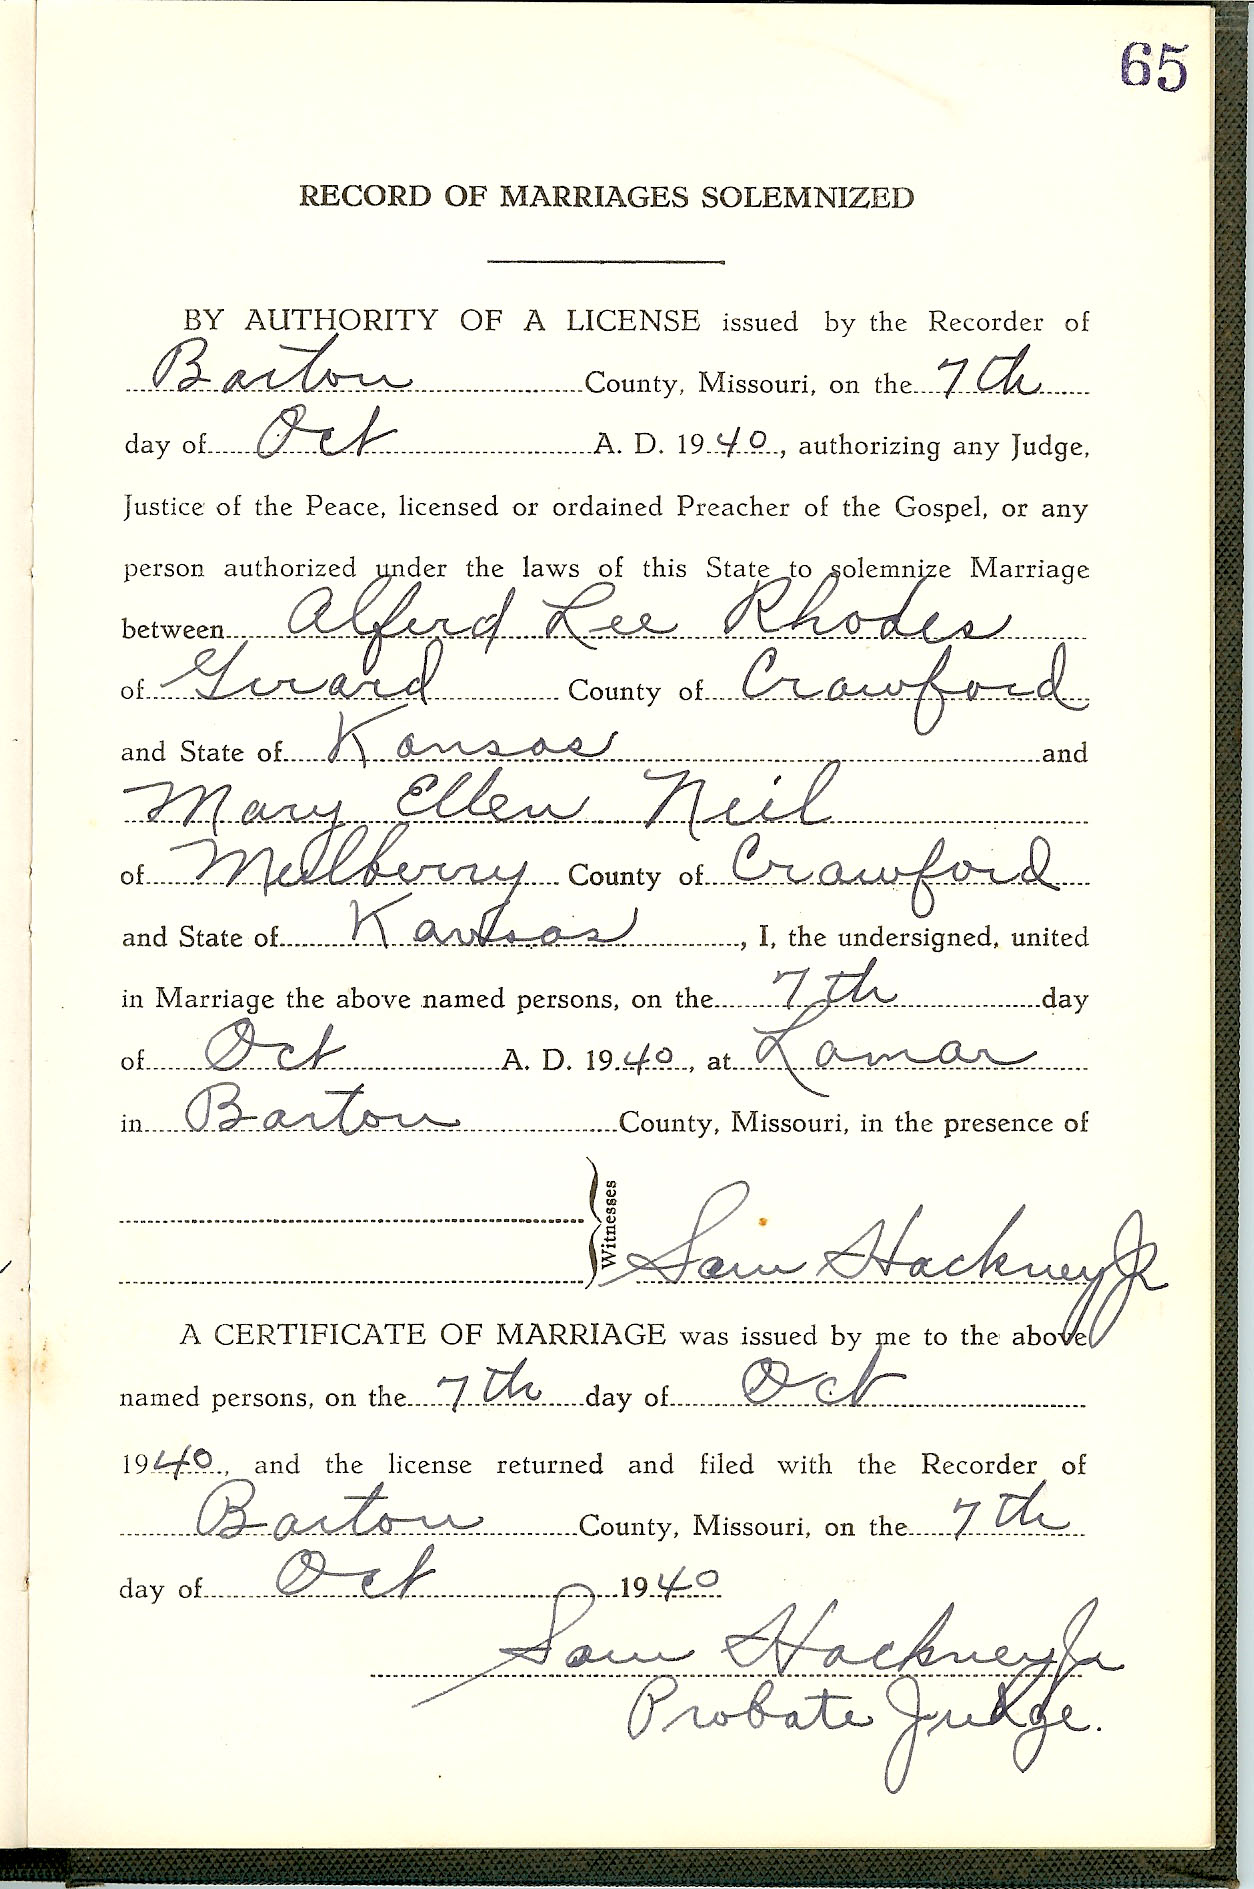 65
RECORD OF MARRIAGES SOLEMNIZED
BY AUTHORITY OF A LICENSE issued by the Recorder of
Barton County, Missouri, on the 7th
day of Oct A. D. 1940, authorizing any Judge,
Justice of the Peace, licensed or ordained Preacher of the Gospel, or any
person authorized under the laws of this State to solemnize Marriage
between Alferd Lee Rhodes
of Girard County of Crawford
and State of Kansas and
Mary Ellen Neil
of Mulberry County of Crawford
and State of Kansas, I, the undersigned, united
in Marriage the above named persons, on the 7th day
of Oct A. D. 1940, at Lamar
in Barton County, Missouri, in the presence of
Witnesses
Sam Hackney Jr
A CERTIFICATE OF MARRIAGE was issued by me to the above
named persons, on the 7th day of Oct
1940, and the license returned and filed with the Recorder of
Barton County, Missouri, on the 7th
day of Oct 1940
Sam Hackney Jr
Probate Judge.